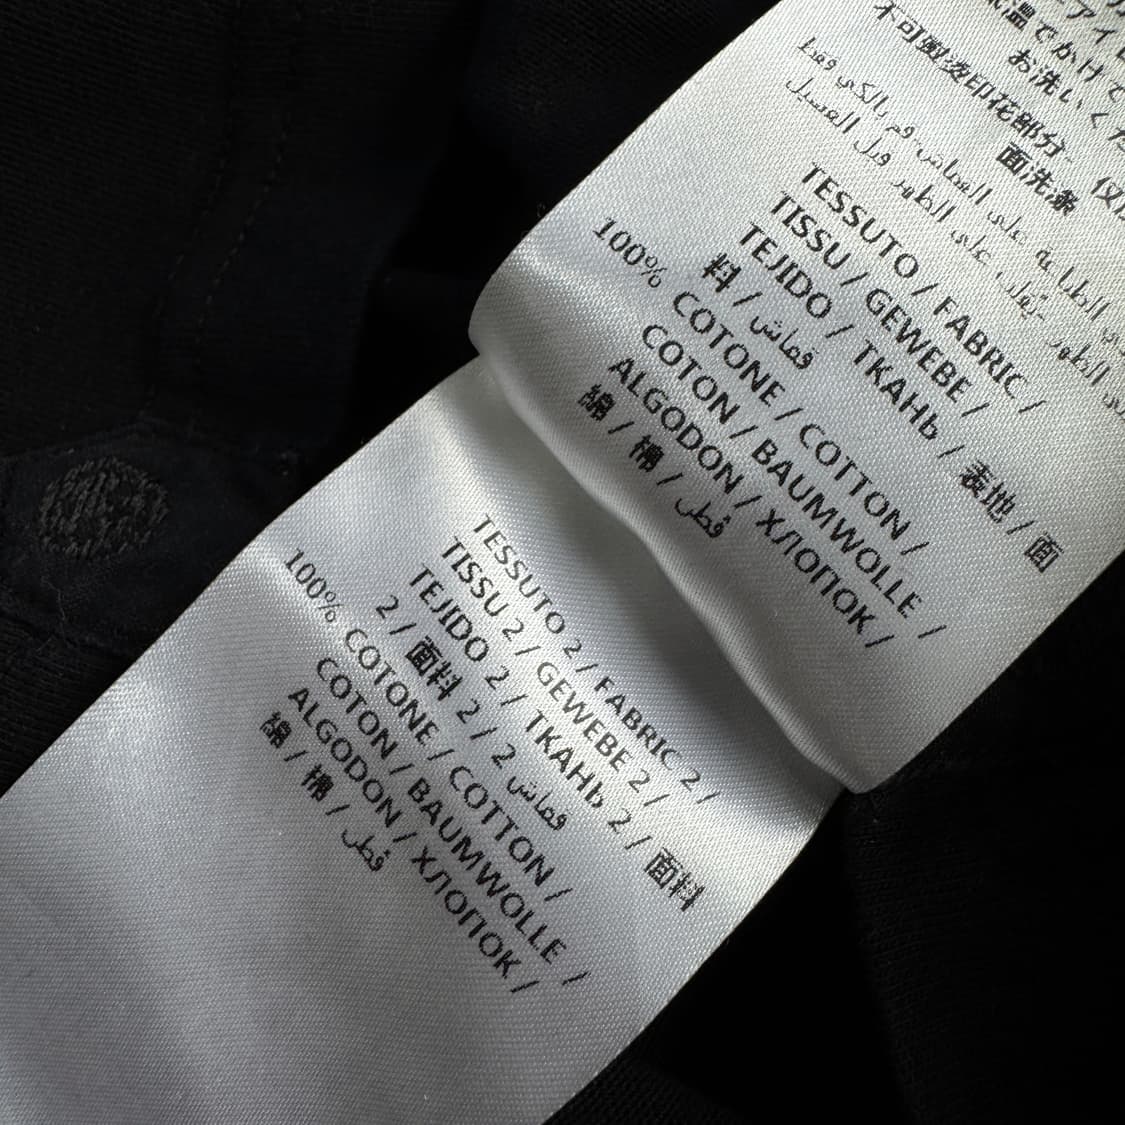 アイ
低温でかけて
お洗いくだ
不可熨烫印花部分- 仅
面洗涤
TESSUTO / FABRIC /
TISSU / GEWEBE /
TEJIDO / ТКАНЬ / 表地 / 面
料 / قماش
100% COTONE / COTTON /
COTON / BAUMWOLLE /
ALGODON / ХЛОПОК /
綿 / 棉 / قطن
TESSUTO 2 / FABRIC 2 /
TISSU 2 / GEWEBE 2 /
TEJIDO 2 / ТКАНЬ 2 / 面料
2 / 面料 2 / قماش 2
100% COTONE / COTTON /
COTON / BAUMWOLLE /
ALGODON / ХЛОПОК /
綿 / 棉 / قطن